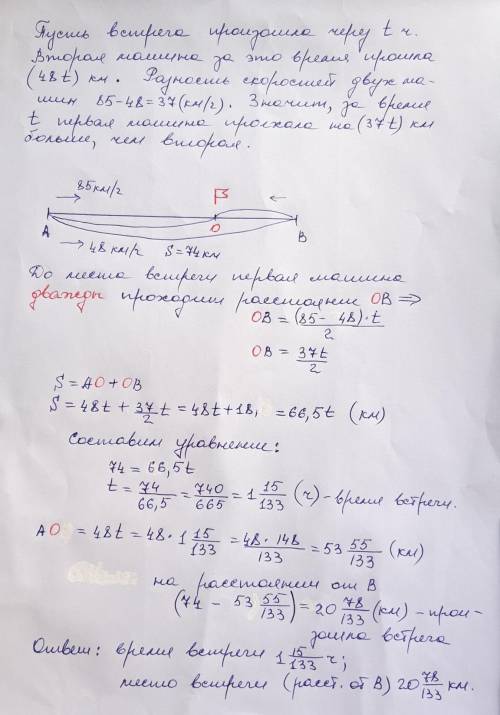 Пусть встреча произошла через t ч.
Вторая машина за это время прошла
(48t) км. Разность скоростей двух ма-
шин 85-48=37(км/ч). Значит, за время
t первая машина проехала на (37t) км
больше, чем вторая.
85км/ч
A O B
48 км/ч S=74км
До места встречи первая машина
дважды проходит расстояние OB ⇒
OB = (85-48)·t/2
OB = 37t/2
S = AO + OB
S = 48t + 37/2 t = 48t+18, =66,5t (км)
Составим уравнение:
74 = 66,5t
t = 74/66,5 = 740/665 = 1 15/133 (ч) - время встречи.
AO = 48t = 48· 1 15/133 = 48·148/133 = 53 55/133 (км)
на расстоянии от B
(74 - 53 55/133) = 20 78/133 (км) - прои-
зошла встреча
Ответ: время встречи 1 15/133 ч;
место встречи (расст. от B) 20 78/133 км.